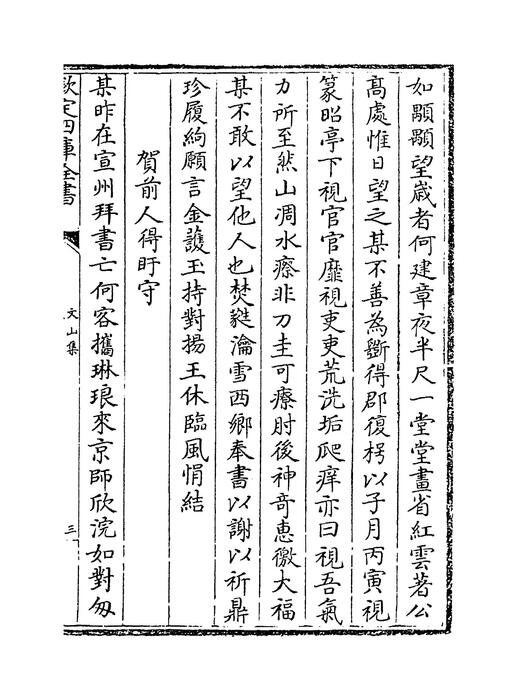 如顒顒望歲者何建章夜半尺一堂堂畫省紅雲著公
髙處惟日望之某不善為斵得郡復枵以子月丙寅視
篆昭亭下視官官靡視吏吏荒洗垢爬痒亦曰視吾氣
力所至然山凋水瘵非刀圭可療肘後神竒惠微大福
某不敢以望他人也焚㲋瀹雪西鄉奉書以謝以祈鼎
珍履絇願言金護玉持對揚王休臨風悁結
賀前人得盱守
某昨在宣州拜書亡何客攜琳琅來京師欣浣如對匆
欽定四庫全書
文山集
三